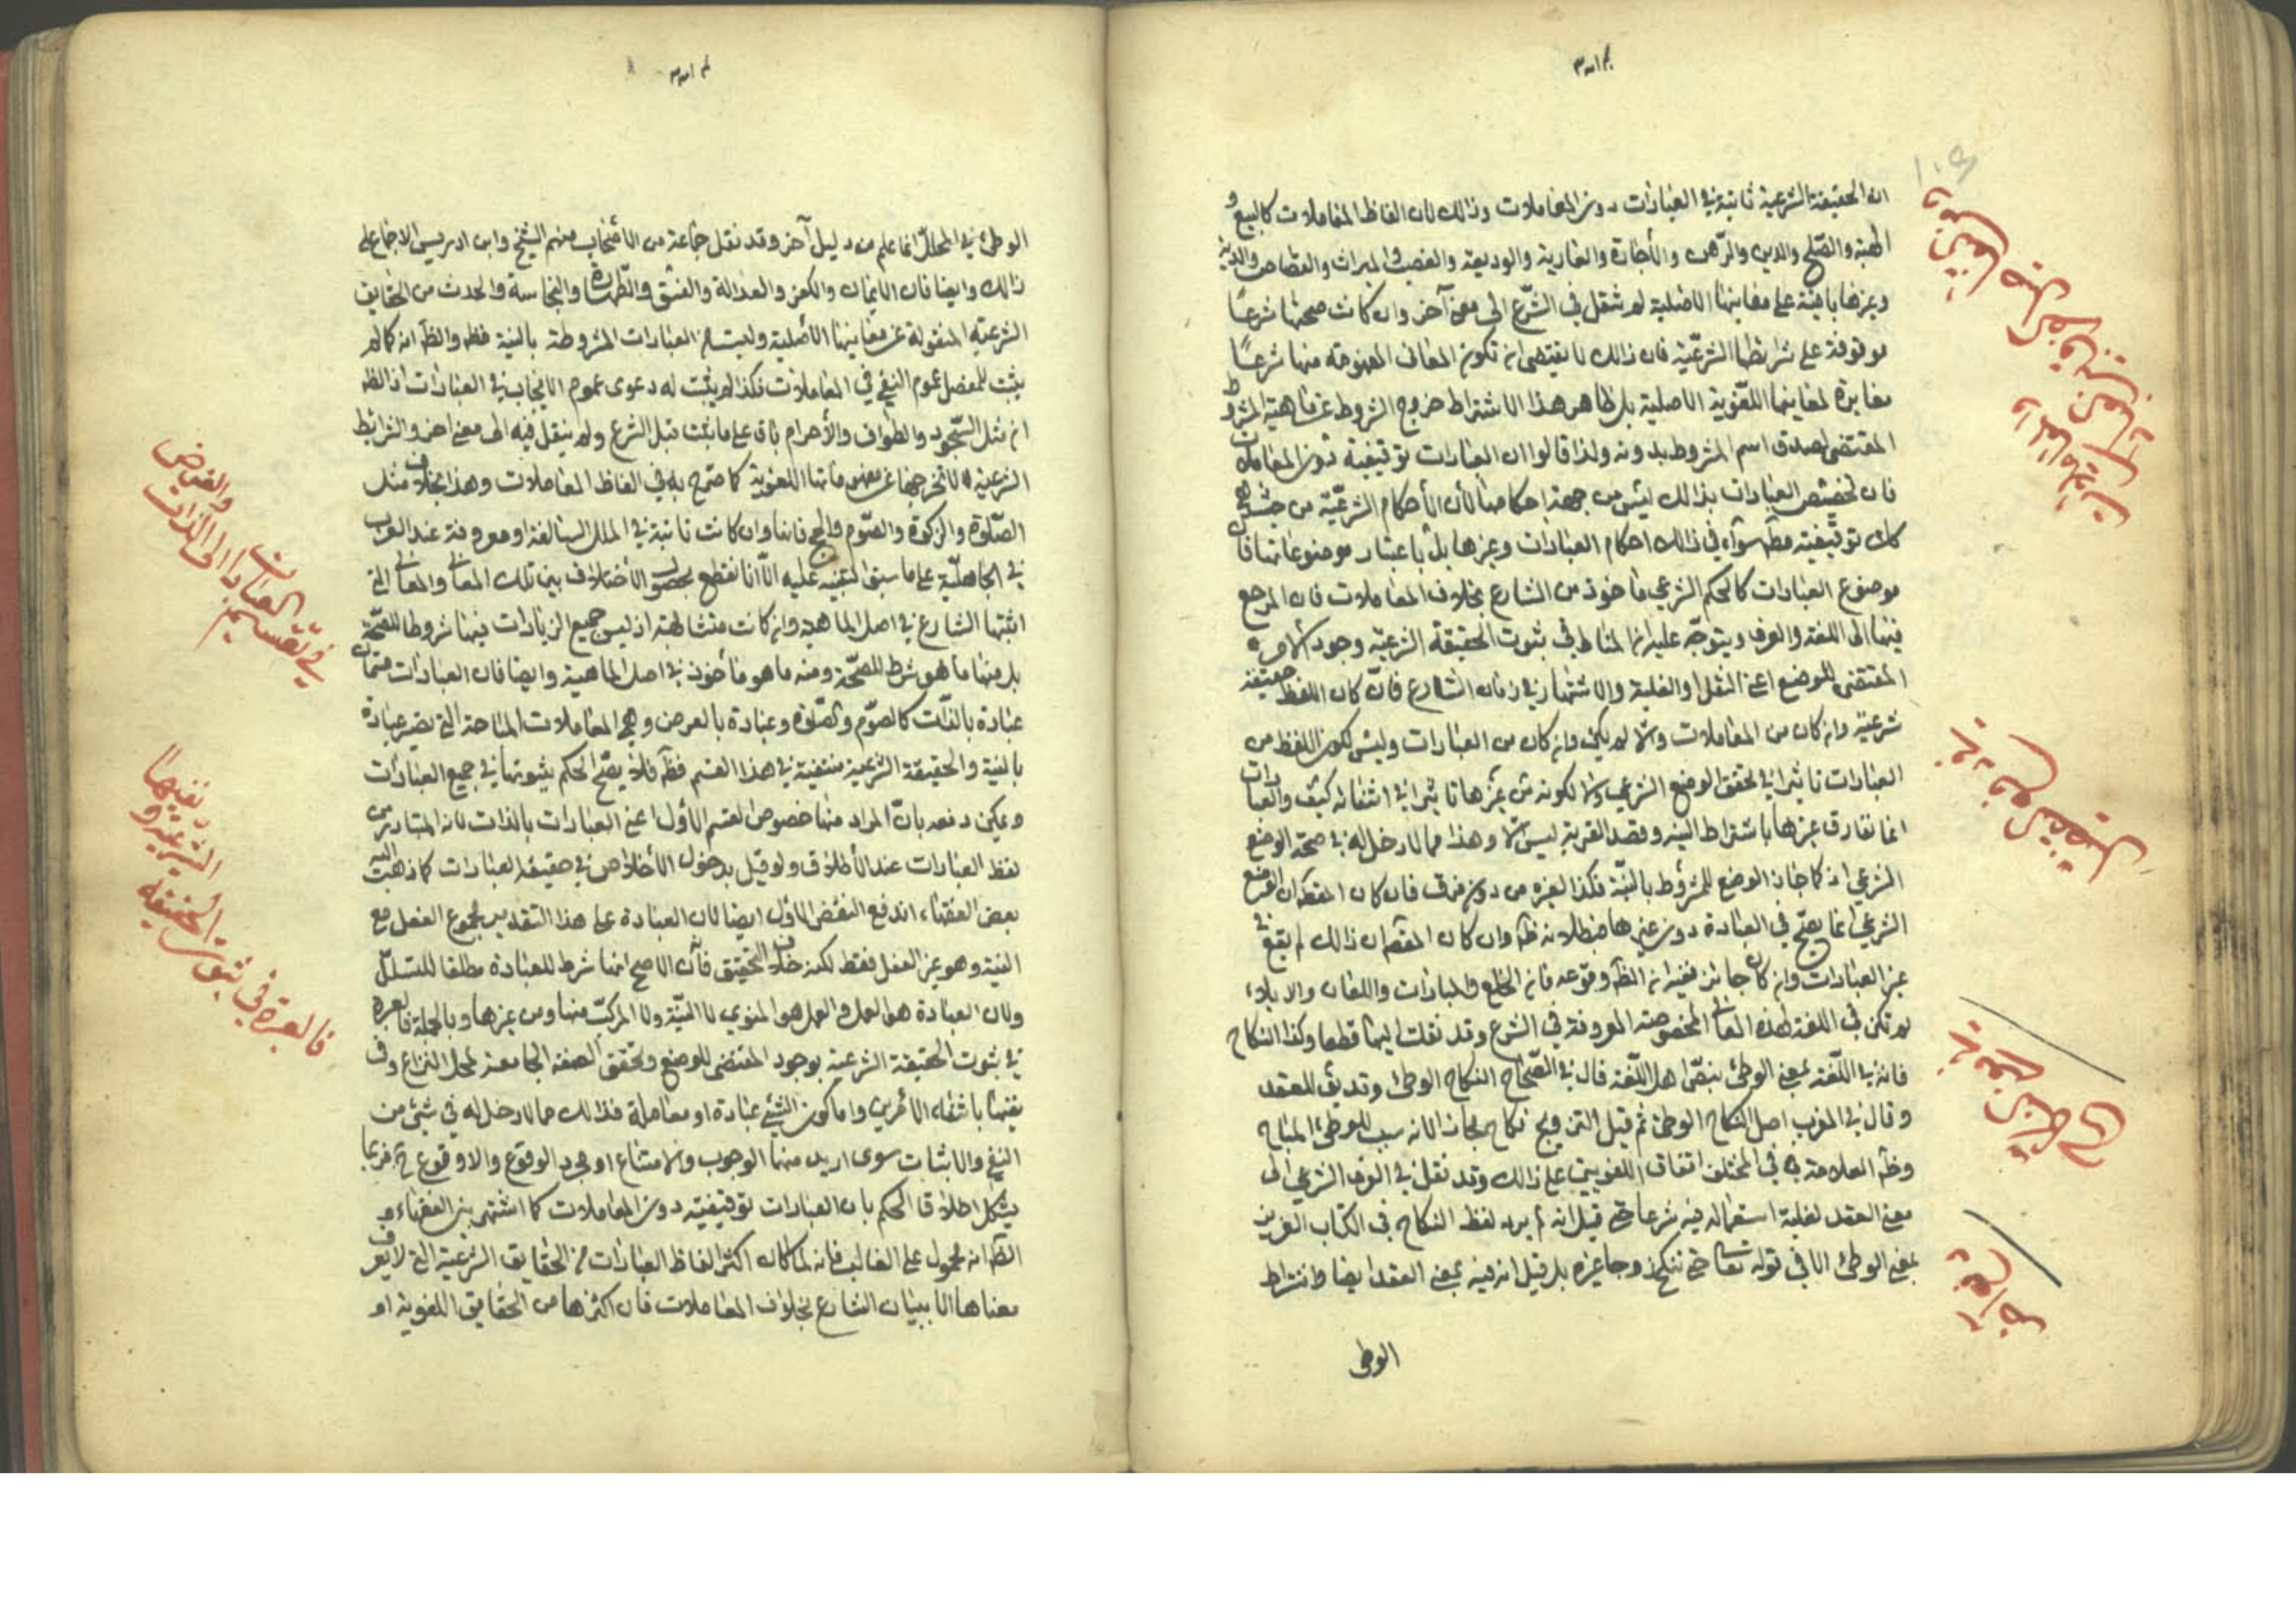 ان الحقيقة الشرعية ثابتة في العبادات دون المعاملات وذلك لان الفاظ المعاملات كالبيع و
الهبة والصلح والدين والرهن والاجارة والعارية والوديعة والغصب والميراث والقصاص والدية
وغيرها باقية على معانيها الاصلية لم تنقل في الشرع الى معنى آخر وان كانت صحتها شرعًا
موقوفة على شرائطها الشرعية فان ذلك لا يقتضي ان تكون المعاني المفهومة منها شرعًا
مغايرة لمعانيها اللغوية الاصلية بل ظاهر هذا الاشتراط خروج الشروط عن ماهية المشروط
المقتضي لصدق اسم المشروط بدونه ولذا قالوا ان العبادات توقيفية دون المعاملات
فان تخصيص العبادات بذلك ليس من جهة احكامها لأن الأحكام الشرعية من حيث هي
كلك توقيفية مط سواء في ذلك احكام العبادات وغيرها بل باعتبار موضوعاتها فان
موضوع العبادات كالحكم الشرعي ماخوذ من الشارع بخلاف المعاملات فان المرجع
فيها الى اللغة والعرف ويتوجه عليه ان المناط في ثبوت الحقيقة الشرعية وجود الامر
المقتضي للوضع اعني النقل او الغلبة والاشتهار في زمان الشارع فان كان اللفظ حقيقة
شرعية وان كان من المعاملات والا لم يكن وان كان من العبادات وليس لكون اللفظ من
العبادات تاثيرا في تحقق الوضع الشرعي ولا لكونه من غيرها تاثيرا في انتفائه كيف والعبادات
انما تفارق غيرها باشتراط النية وقصد القربة ليس الا وهذا مما لا دخل له في صحة الوضع
الشرعي اذ كما جاز الوضع للمشروط بالنية فكذا لغيره من دون فرق فان كان المقصود ان الوضع
الشرعي انما يصح في العبادة دون غيرها فبطلانه ظ وان كان المقصود ان ذلك لم يقع في
غير العبادات وان كان جائز ففيه ان الظ وقوعه فان الخلع والمبارات واللعان والايلاء
لم تكن في اللغة لهذه المعاني المخصوصة المعروفة في الشرع وقد نقلت اليها قطعا وكذا النكاح
فانه في اللغة بمعنى الوطئ بنص اهل اللغة قال في الصحاح النكاح الوطئ وقد يق للعقد
وقال في المغرب اصل النكاح الوطئ ثم قيل للتزويج نكاح مجازا لانه سبب للوطئ المباح
العلامة ره في المختلف اتفاق اللغويين على ذلك وقد نقل في العرف الشرعي الى
معنى العقد لغلبة استعماله فيه شرعا حتى قيل انه لم يرد لفظ النكاح في الكتاب العزيز
بمعنى الوطئ الا في قوله تعالى حتى تنكح زوجا غيره بل قيل انه فيه بمعنى العقد ايضا واشتراط
الوطى
الوطئ في المحلل انما علم من دليل آخر وقد نقل جماعة من الأصحاب منهم الشيخ وابن ادريس الاجماع على
ذلك وايضا فان الايمان والكفر والعدالة والفسق والطهارة والنجاسة والحدث من الحقايق
الشرعية المنقولة عن معانيها الأصلية وليست من العبادات المشروطة بالنية قط والظ انه كما لم
يثبت للمفصل عموم النفي في المعاملات فكذا لم يثبت له دعوى عموم الايجاب في العبادات اذ الظ
ان مثل السجود والطواف والأحرام باق على ما ثبت قبل الشرع ولم ينقل فيه الى معنى اخر والشرائط
الشرعية لا تخرجها عن مفهوماتها اللغوية كما صرح به في الفاظ المعاملات وهذا بخلاف مثل
الصلوة والزكوة والصوم والحج فانها وان كانت ثابتة في الملل السالفة او معروفة عند العرب
في الجاهلية على ما سبق التنبيه عليه الا انا نقطع بحصول الأختلاف بين تلك المعاني والمعاني التي
اثبتها الشارع في اصل الماهية وان كانت متشابهة اذ ليس جميع الزيادات فيها شروطا للصحة
بل منها ما هو شرط للصحة ومنه ما هو مأخوذ في اصل الماهية وايضا فان العبادات قسمان
عبادة بالذات كالصوم والصلوة وعبادة بالعرض وهي المعاملات المباحة التي تصير عبادة
بالنية والحقيقة الشرعية منتفية في هذا القسم قط فلا يصح الحكم بثبوتها في جميع العبادات
ويمكن دفعه بان المراد منها خصوص القسم الأول اعني العبادات بالذات لانه المتبادر من
لفظ العبادات عند الأطلاق ولو قيل بدخول الأخلاص في حقيقة العبادات كما ذهب اليه
بعض الفقهاء اندفع النقض الاول ايضا لان العبادة على هذا التقدير مجموع الفعل مع
النية وهو غير الفعل فقط لكنه خلاف التحقيق فان الاصح انها شرط للعبادة مطلقا للتسلسل
ولان العبادة هو العمل والعمل هو المنوي لا النية ولا المركب منها ومن غيرها وبالجملة فالعبرة
في ثبوت الحقيقة الشرعية بوجود المقتضي للوضع وتحقق الصفة الجامعة لمحل النزاع وفي
نفيها بانتفاء الأمرين واما كون الشئ عبادة او معاملة فذلك مما لا دخل له في شئ من
النفي والاثبات سوى اريد منها الوجوب والامتناع او مجرد الوقوع واللاوقوع نعم ربما
يشكل اطلاق الحكم بان العبادات توقيفية دون المعاملات كما اشتهر بين الفقهاء و
الظ انه محمول على الغالب فانه لما كان اكثر الفاظ العبادات من الحقايق الشرعية التي لا يعرف
معناها الا ببيان الشارع بخلاف المعاملات فان اكثرها من الحقايق اللغوية او
في تقسيم العبادات الى الذات
والعرض
فالعبرة في ثبوت الحقيقة
الشرعية و
نفيها